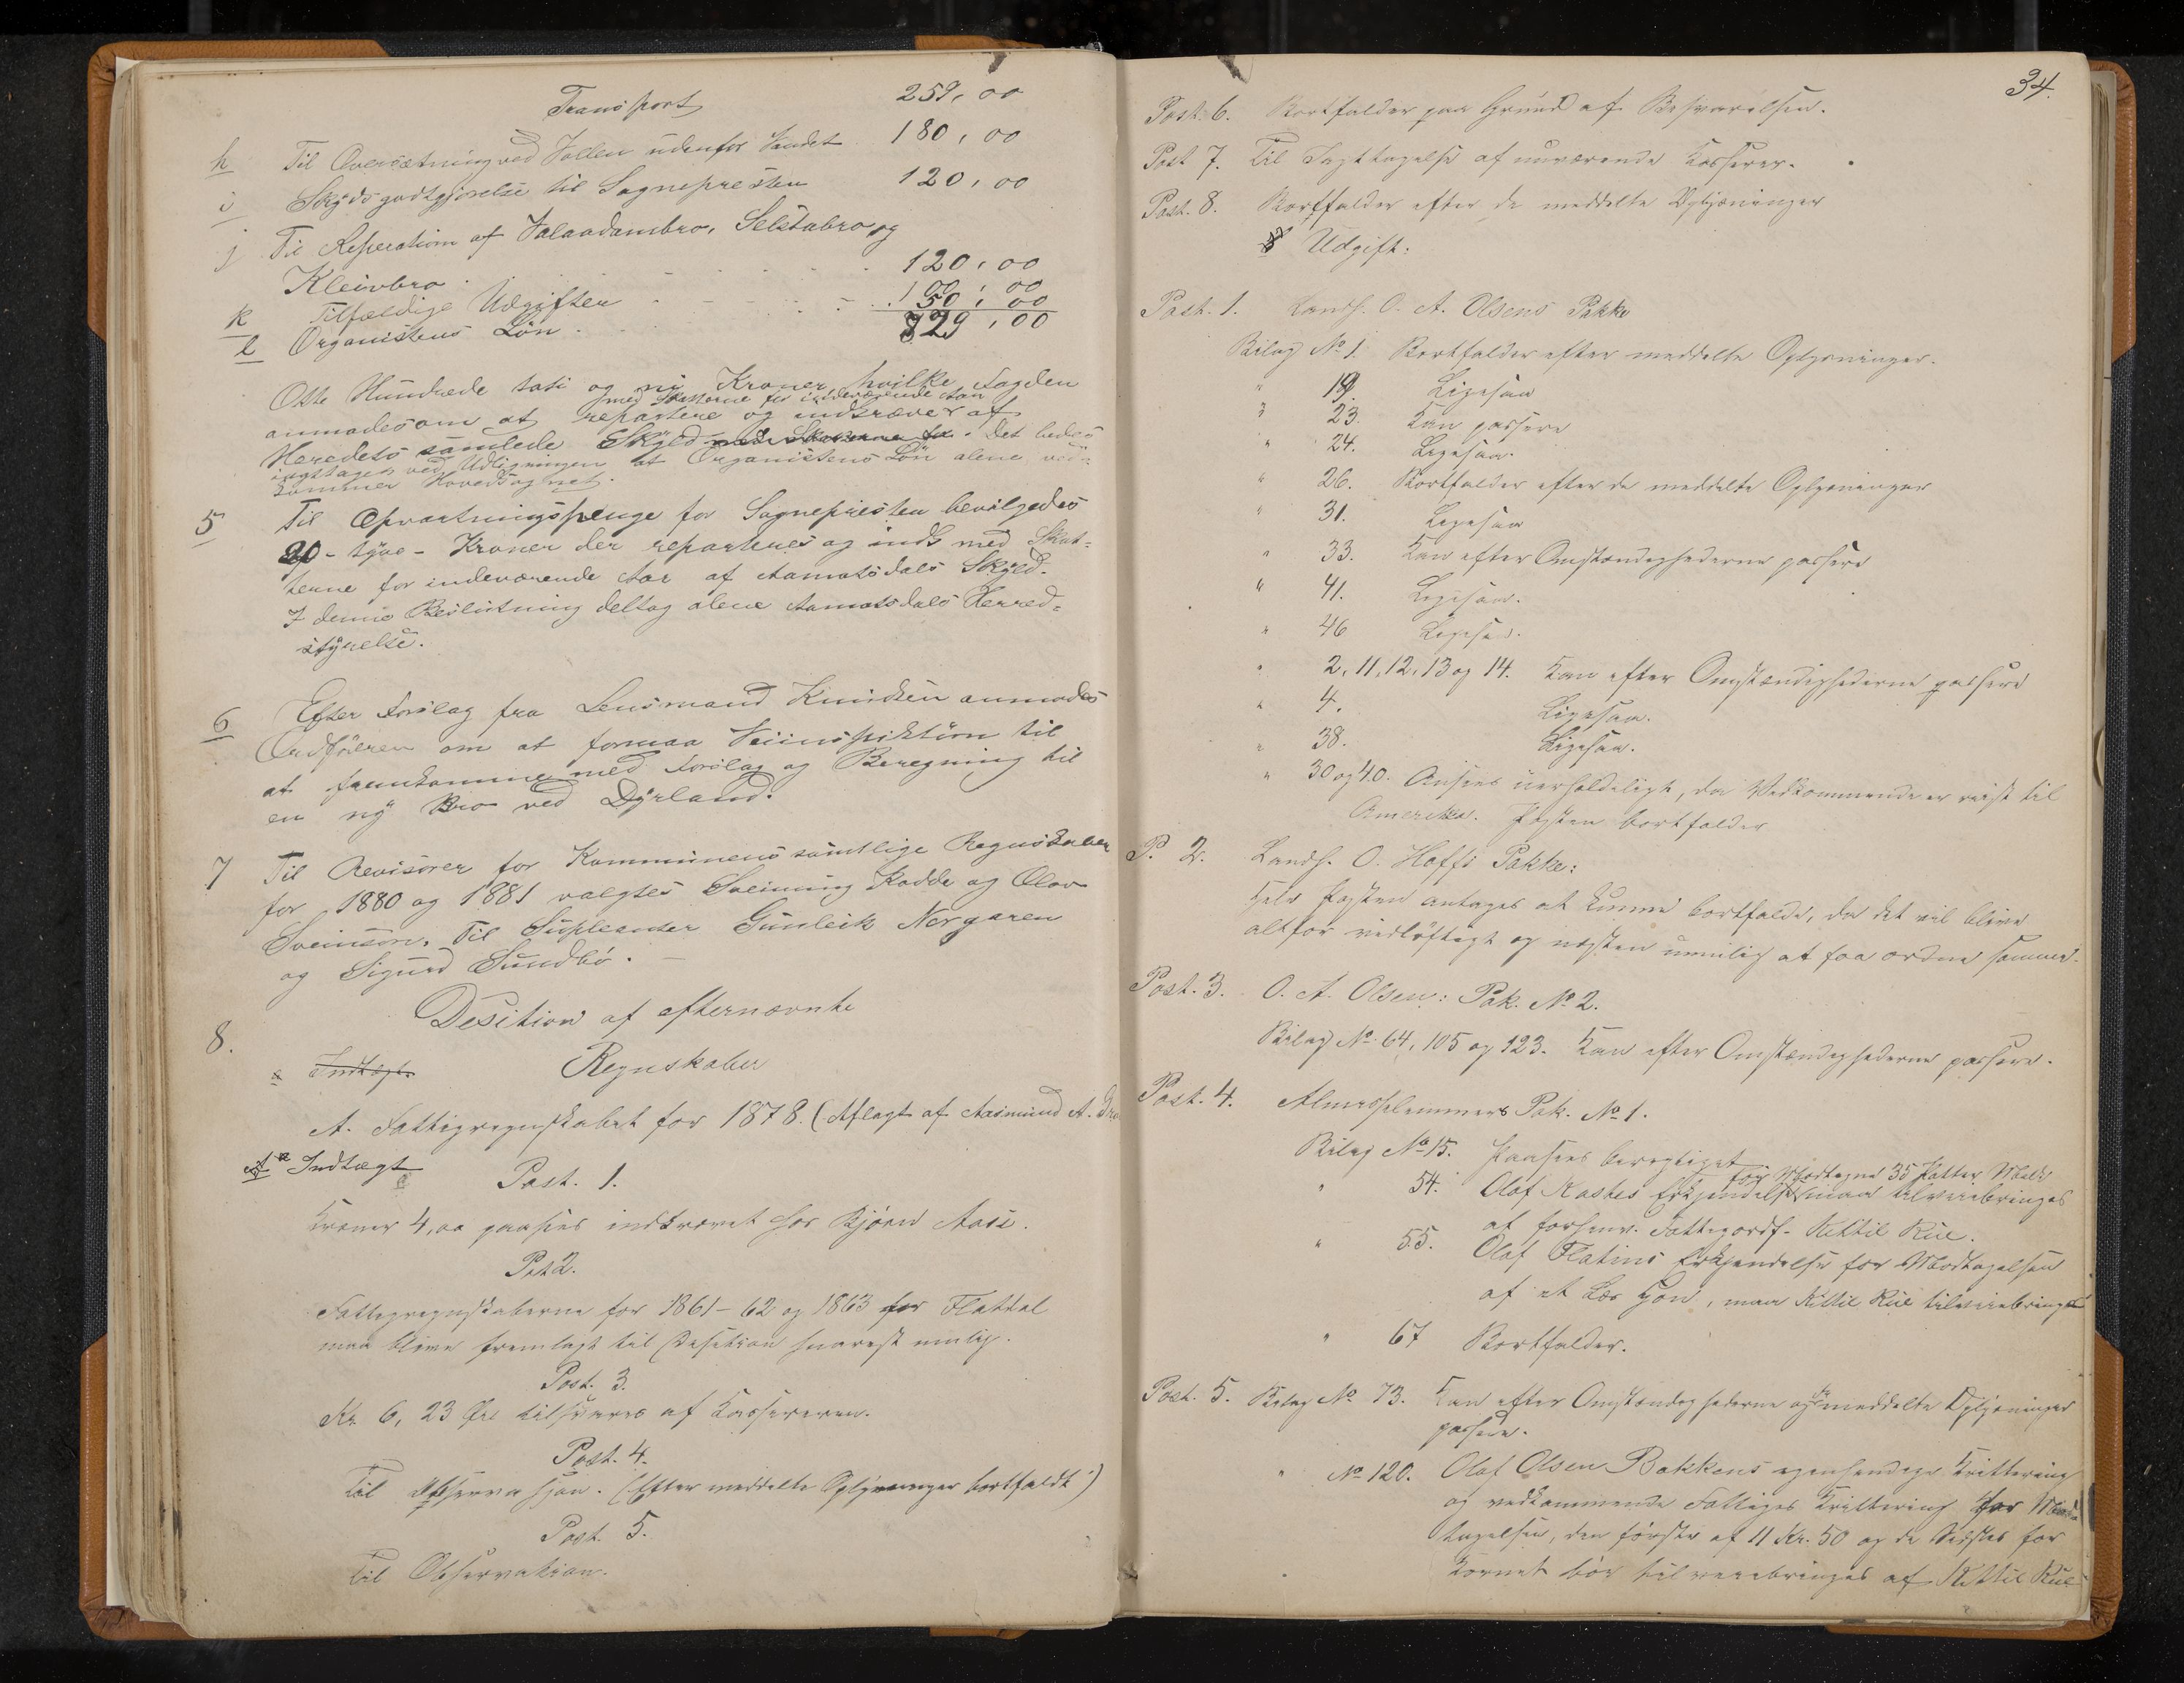 Transport 259,00
h Til Oversætning ved Vollen udenfor Vandet 180,00
i Skydsgodtgjørelse til Sognepresten 120,00
j Til Reperation af Valaadambro, Selstabro og
Kleivbro 120,00
k Tilfældige Udgifter 100,00
l Organistens Løn 50,00
829,00
Otte Hundrede toti og ni Kroner, hvilke Fogden
med Skatterne for indeværende Aar
anmodes om at repartere og indkræve af
Heredets samlede Skyld med Skatterne for. Det bedes
iagttaget ved Udligningen at Organistens Løn alene ved-
kommer Hovedsognet.
5 Til Opvartningspenge for Sognepresten bevilgedes
20 - tyve - Kroner der reparteres og indk med Skat-
terne for indeværende Aar af Aamotsdals Skyld.
I denne Beslutning deltog alene Aamotsdals Herred-
styrelse.
6 Efter Forslag fra Lensmand Knudsen anmodes
Ordføreren om at formaa Veiinspektøren til
at fremkomme med Forslag og Beregning til
en ny Bro ved Dyrland.
7 Til Revisorer for Kommunens samtlige Regnskaber
for 1880 og 1881 valgtes Sveinung Kodde og Olav
Sveinson. Til Supleanter Gunleik Norgaren
og Sigurd Sundbø.
8. Desition af efternævnte
a Indtægt. Regnskaber
A. Fattigregnskabet for 1878. (Aflagt af Aasmund A.
A a Indtægt
Post. 1.
Kroner 4,00 paasees indkrævet hos Bjørn Aase.
Pst 2.
Fattigregnskaberne for 1861-62 og 1863 for Flatdal
maa blive fremlagt til Desition snarest mulig.
Post. 3.
Kr. 6, 23 Øre tilsvares af Kassereren.
Post. 4.
Til Observasjon. (Efter meddelte Oplysninger bortfaldt)
Post 5.
Til Observation.
34.
Post. 6. Bortfalder paa Grund af Besvarelsen.
Post 7. Til Iagttagelse af nuværende Kasserer.
Post. 8. Bortfalder efter de meddelte Oplysninger
Udgift:
Post. 1. Landh. O. A. Olsens Pakke
Bilag No 1. Bortfalder efter meddelte Oplysninger.
" 19. Ligesaa
" 23. Kan passere
" 24. Ligesaa.
" 26. Bortfalder efter de meddelte Oplysninger
" 31. Ligesaa
" 33. Kan efter Omstændighederne passere
" 41. Ligesaa.
" 46 Ligesaa.
" 2, 11, 12, 13 og 14. Kan efter Omstændighederne passere
" 4. Ligesaa.
" 38. Ligesaa.
" 30 og 40. Ansees uerholdeligt, da Vedkommende er reist til
Amerika. Posten bortfalder
P. 2. Landh. O. Hoffs Pakke:
Hele Posten antages at kunne bortfalde, da det vil blive
altfor vidløftigt og næsten umulig at faa ordne samme.
Post. 3. O. A. Olsen: Pak. No 2.
Bilag No. 64, 105 og 123. Kan efter Omstændighederne passere.
Post. 4. Almisselemmers Pak. No 1.
Bilag No 15. Paasees berigtiget
for Modtagne 35 Potter Melk
" 54. Olaf Kastes Erkjendelse maa tilveiebringes
af forhenv. Fattigordf. Kettil Rue.
" 55. Olaf Flatins Erkjendelse for Modtagelsen
af et Læs Høy, maa Kittil Rue tilveiebringe
" 67 Bortfalder.
Post. 5. Bilag No 73. Kan efter Omstændighederne og de meddelte Oplysninger
passere.
" No 120. Olaf Olsen Bakkens egenhendige Kvittering
og vedkommende Fattiges Kvittering for Mod-
tagelsen, den første af 11 Kr. 50 og de sidstes for
Kornet bør tilveiebringes af Kittil Rue